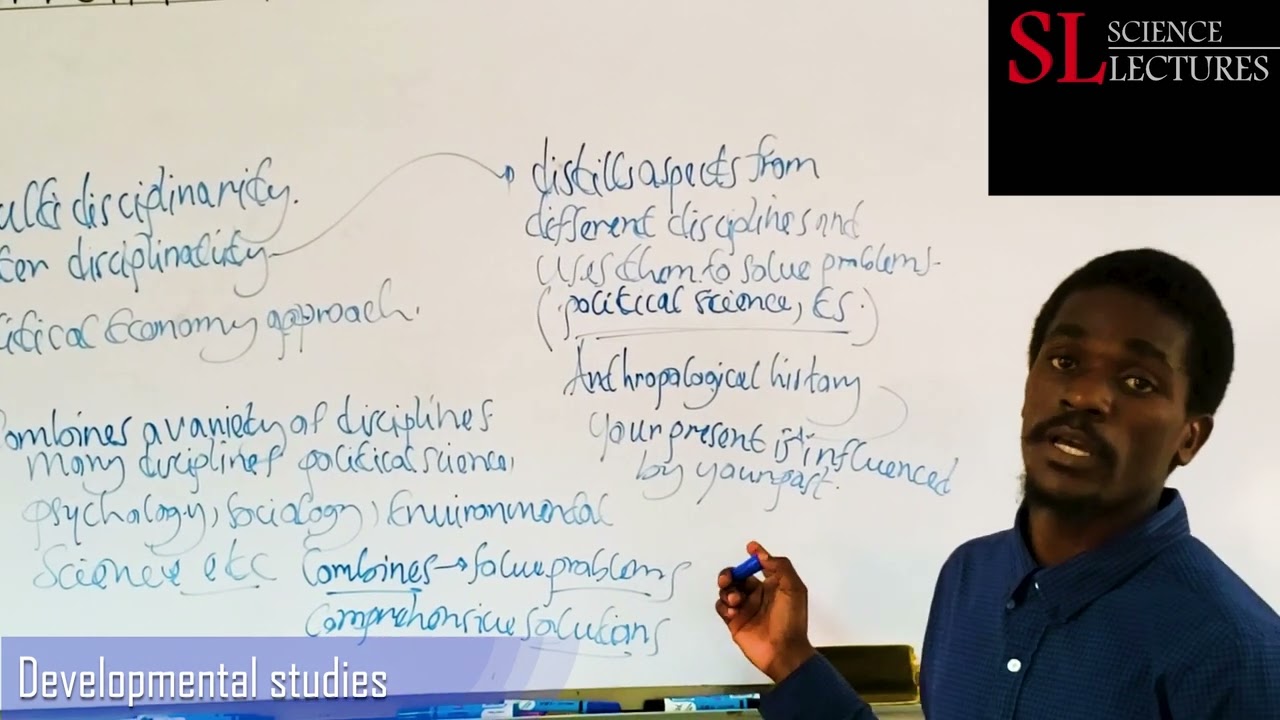 SL SCIENCE
LECTURES
ulti disciplinarity.
ter disciplinality
litical Economy approach.
distills aspects from
different disciplines and
uses them to solve problems.
(political science, ES.)
Anthropological history
Your present is influenced
by your past.
Combines a variety of disciplines
many disciplines political science,
psychology, Sociology, Environmental
Science etc Combines → solve problems
Comprehensive solutions
Developmental studies